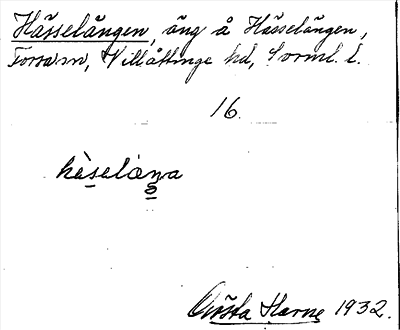 Hässelängen, äng å Hässelängen,
Forssa sn, Villåttinge hd, Sörml. l.
16.
hèselàŋa
Gösta Harne 1932.